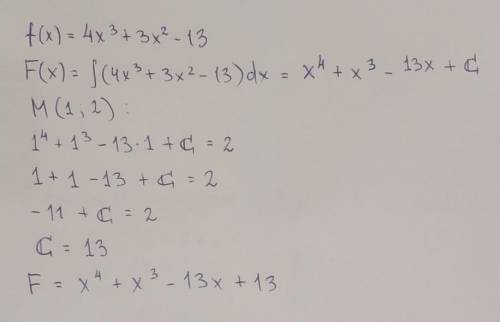 f(x) = 4x³ + 3x² - 13
F(x) = ∫(4x³ + 3x² - 13)dx = x⁴ + x³ - 13x + C
M(1; 2) :
1⁴ + 1³ - 13·1 + C = 2
1 + 1 - 13 + C = 2
-11 + C = 2
C = 13
F = x⁴ + x³ - 13x + 13